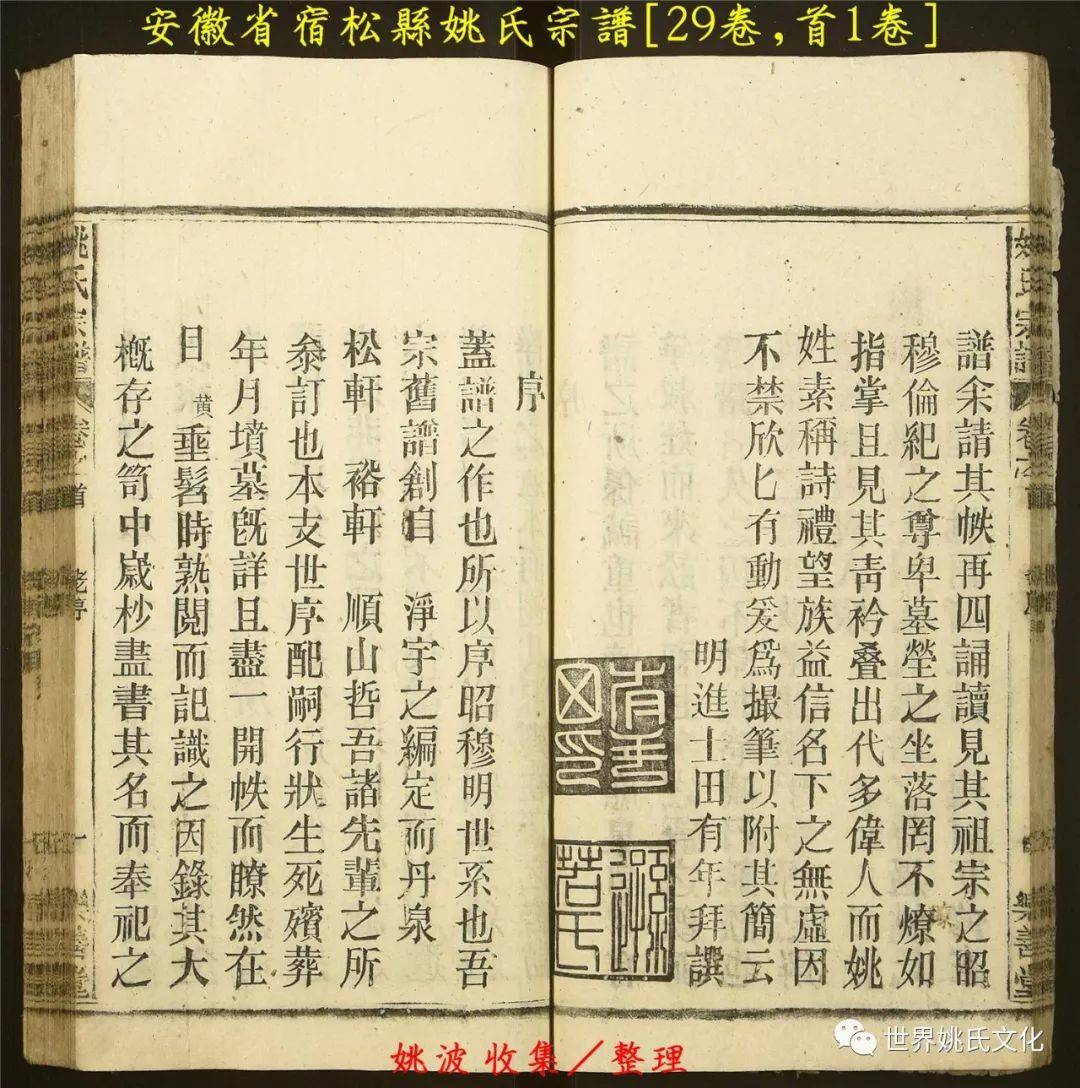 安徽省宿松縣姚氏宗譜[29卷,首1卷]
姚氏宗譜
樂善堂
譜余請其帙再四誦讀見其祖宗之昭
穆倫紀之尊卑墓塋之坐落罔不燎如
指掌且見其青衿叠出代多偉人而姚
姓素稱詩禮望族益信名下之無虛因
不禁欣匕有動爰爲撮筆以附其簡云
明進士田有年拜譔
序
蓋譜之作也所以序昭穆明世系也吾
宗舊譜創自 淨宇之編定而丹泉
松軒 裕軒 順山哲吾諸先輩之所
叅訂也本支世序配嗣行狀生死殯葬
年月墳墓旣詳且盡一開帙而瞭然在
目黄垂髫時熟閱而記識之因錄其大
槪存之笥中嵗杪盡書其名而奉祀之
姚氏宗譜
卷之首
老序
一
樂善堂
姚波收集／整理
世界姚氏文化